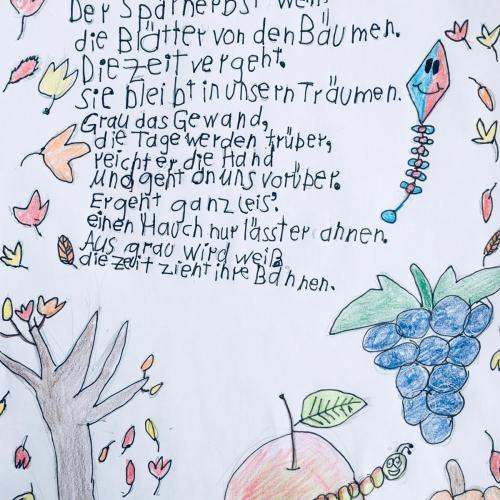 Der Spätherbst weht
die Blätter von den Bäumen.
Die Zeit vergeht.
Sie bleibt in unsern Träumen.
Grau das Gewand,
die Tage werden trüber,
reicht er die Hand
und geht an uns vorüber.
Er geht ganz leis'.
einen Hauch nur lässt er ahnen.
Aus grau wird weiß
die zeit zieht ihre Bahnen.